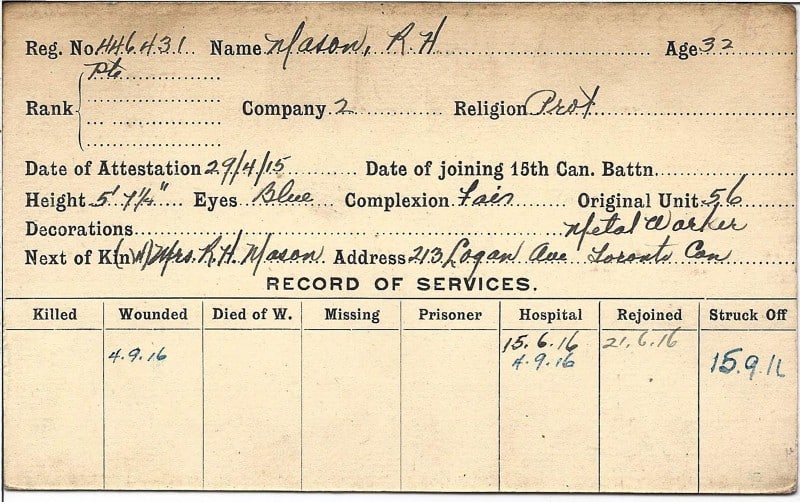 Reg. No. 446431 Name Mason, R. H Age 32
Pte
Rank Company 2 Religion Prot
Date of Attestation 29/4/15 Date of joining 15th Can. Battn.
Height 5' 7¼" Eyes Blue Complexion Fair Original Unit 56
Decorations Metal Worker
Next of Kin (W) Mrs. R. H Mason Address 213 Logan Ave Toronto Can
RECORD OF SERVICES.
Killed Wounded Died of W. Missing Prisoner Hospital Rejoined Struck Off
15.6.16 21.6.16
4.9.16 4.9.16 15.9.16